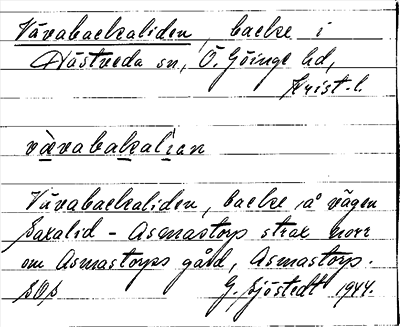 Vävabackaliden, backe i
Nästveda sn, Ö. Göinge hd,
Krist. l.
vävabakalian
Vävabackaliden, backe å vägen
Saxalid - Asmastorp strax norr
om Asmastorps gård, Asmastorp.
G. Sjöstedt 1944.